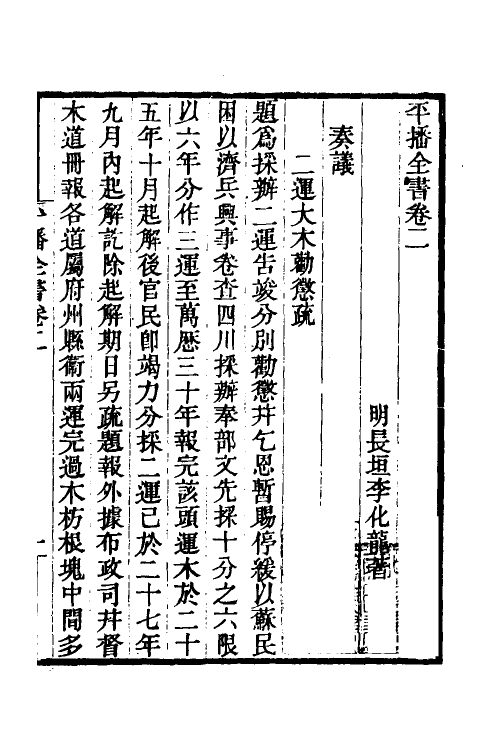 平播全書卷二
明長垣李化龍著
奏議
二運大木勸懲疏
題爲採辦二運告竣分別勸懲幷乞恩暫賜停緩以蘇民
困以濟兵興事卷查四川採辦奉部文先採十分之六限
以六年分作三運至萬曆三十年報完該頭運木於二十
五年十月起解後官民卽竭力分採二運已於二十七年
九月內起解訖除起解期日另疏題報外據布政司幷督
木道冊報各道屬府州縣衛兩運完過木枋根塊中間多
平播全書卷二
一